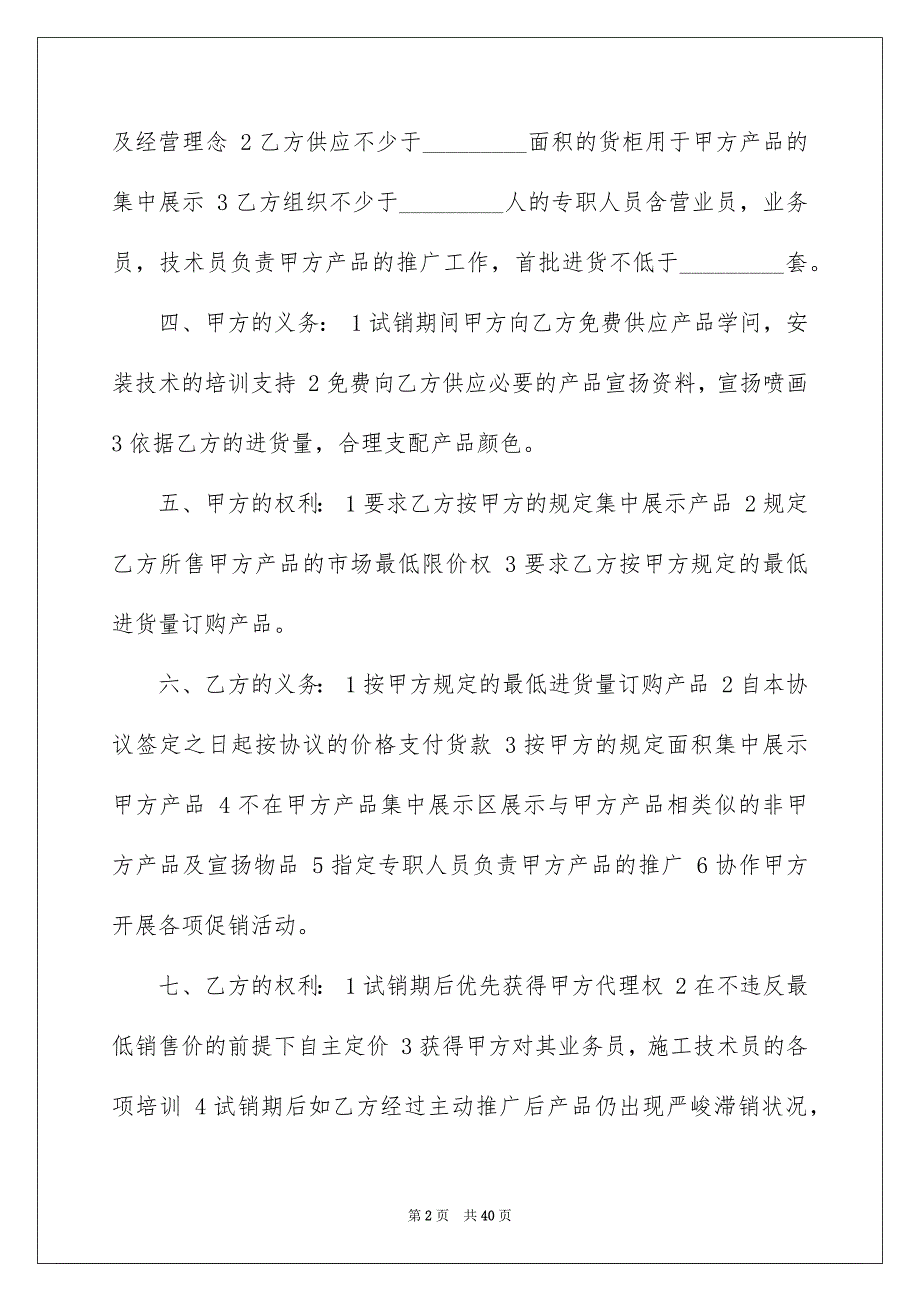 及经营理念 2乙方供应不少于_________面积的货柜用于甲方产品的
集中展示 3乙方组织不少于_________人的专职人员含营业员，业务
员，技术员负责甲方产品的推广工作，首批进货不低于_________套。
四、甲方的义务： 1试销期间甲方向乙方免费供应产品学问，安
装技术的培训支持 2免费向乙方供应必要的产品宣扬资料，宣扬喷画
3依据乙方的进货量，合理支配产品颜色。
五、甲方的权利： 1要求乙方按甲方的规定集中展示产品 2规定
乙方所售甲方产品的市场最低限价权 3要求乙方按甲方规定的最低
进货量订购产品。
六、乙方的义务： 1按甲方规定的最低进货量订购产品 2自本协
议签定之日起按协议的价格支付货款 3按甲方的规定面积集中展示
甲方产品 4不在甲方产品集中展示区展示与甲方产品相类似的非甲
方产品及宣扬物品 5指定专职人员负责甲方产品的推广 6协作甲方
开展各项促销活动。
七、乙方的权利： 1试销期后优先获得甲方代理权 2在不违反最
低销售价的前提下自主定价 3获得甲方对其业务员，施工技术员的各
项培训 4试销期后如乙方经过主动推广后产品仍出现严峻滞销状况，
第2页 共40页